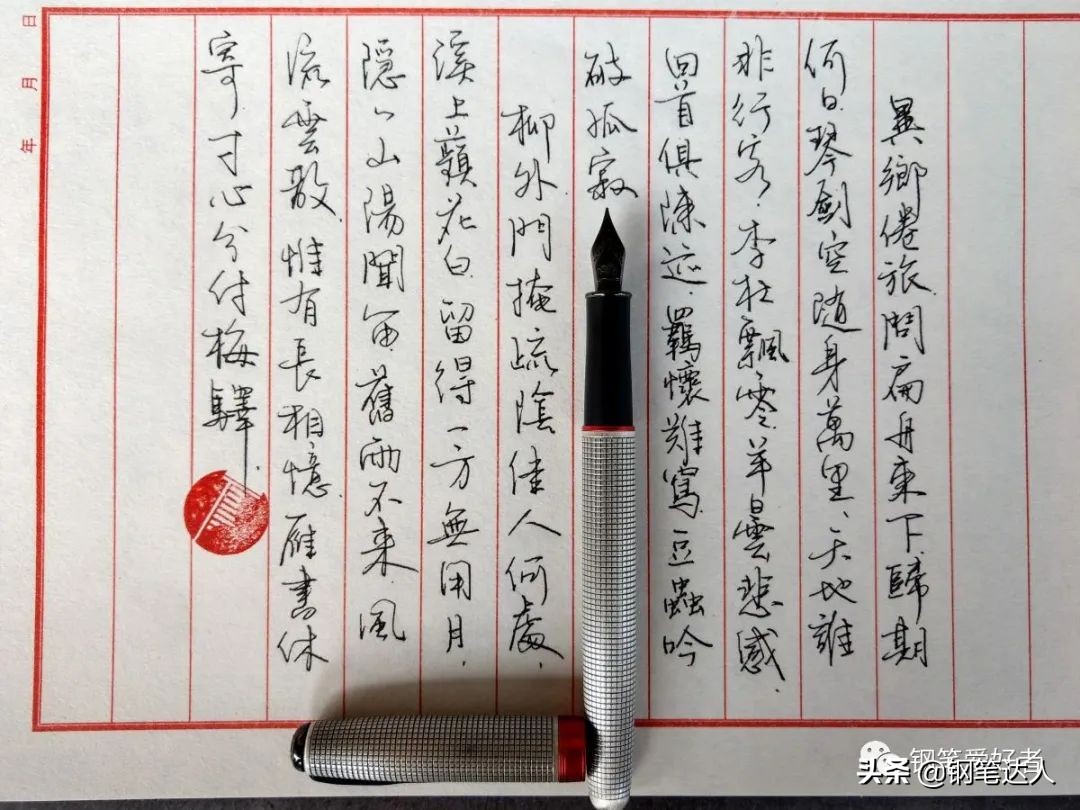 異鄉倦旅.問扁舟東下.歸期
何日.琴劍空隨身萬里、天地誰
非行客.李杜飄零.羊曇悲感.
回首俱陳迹.羈懷難寫.豆蟲吟
破孤寂
柳外門掩疏陰.佳人何處.
溪上蘋花白.留得一方無用月.
隱々山陽聞笛.舊雨不来.風
流雲散.惟有長相憶.雁書休
寄.寸心分付梅驛.
年 月 日
钢笔爱好者
头条 @钢笔达人